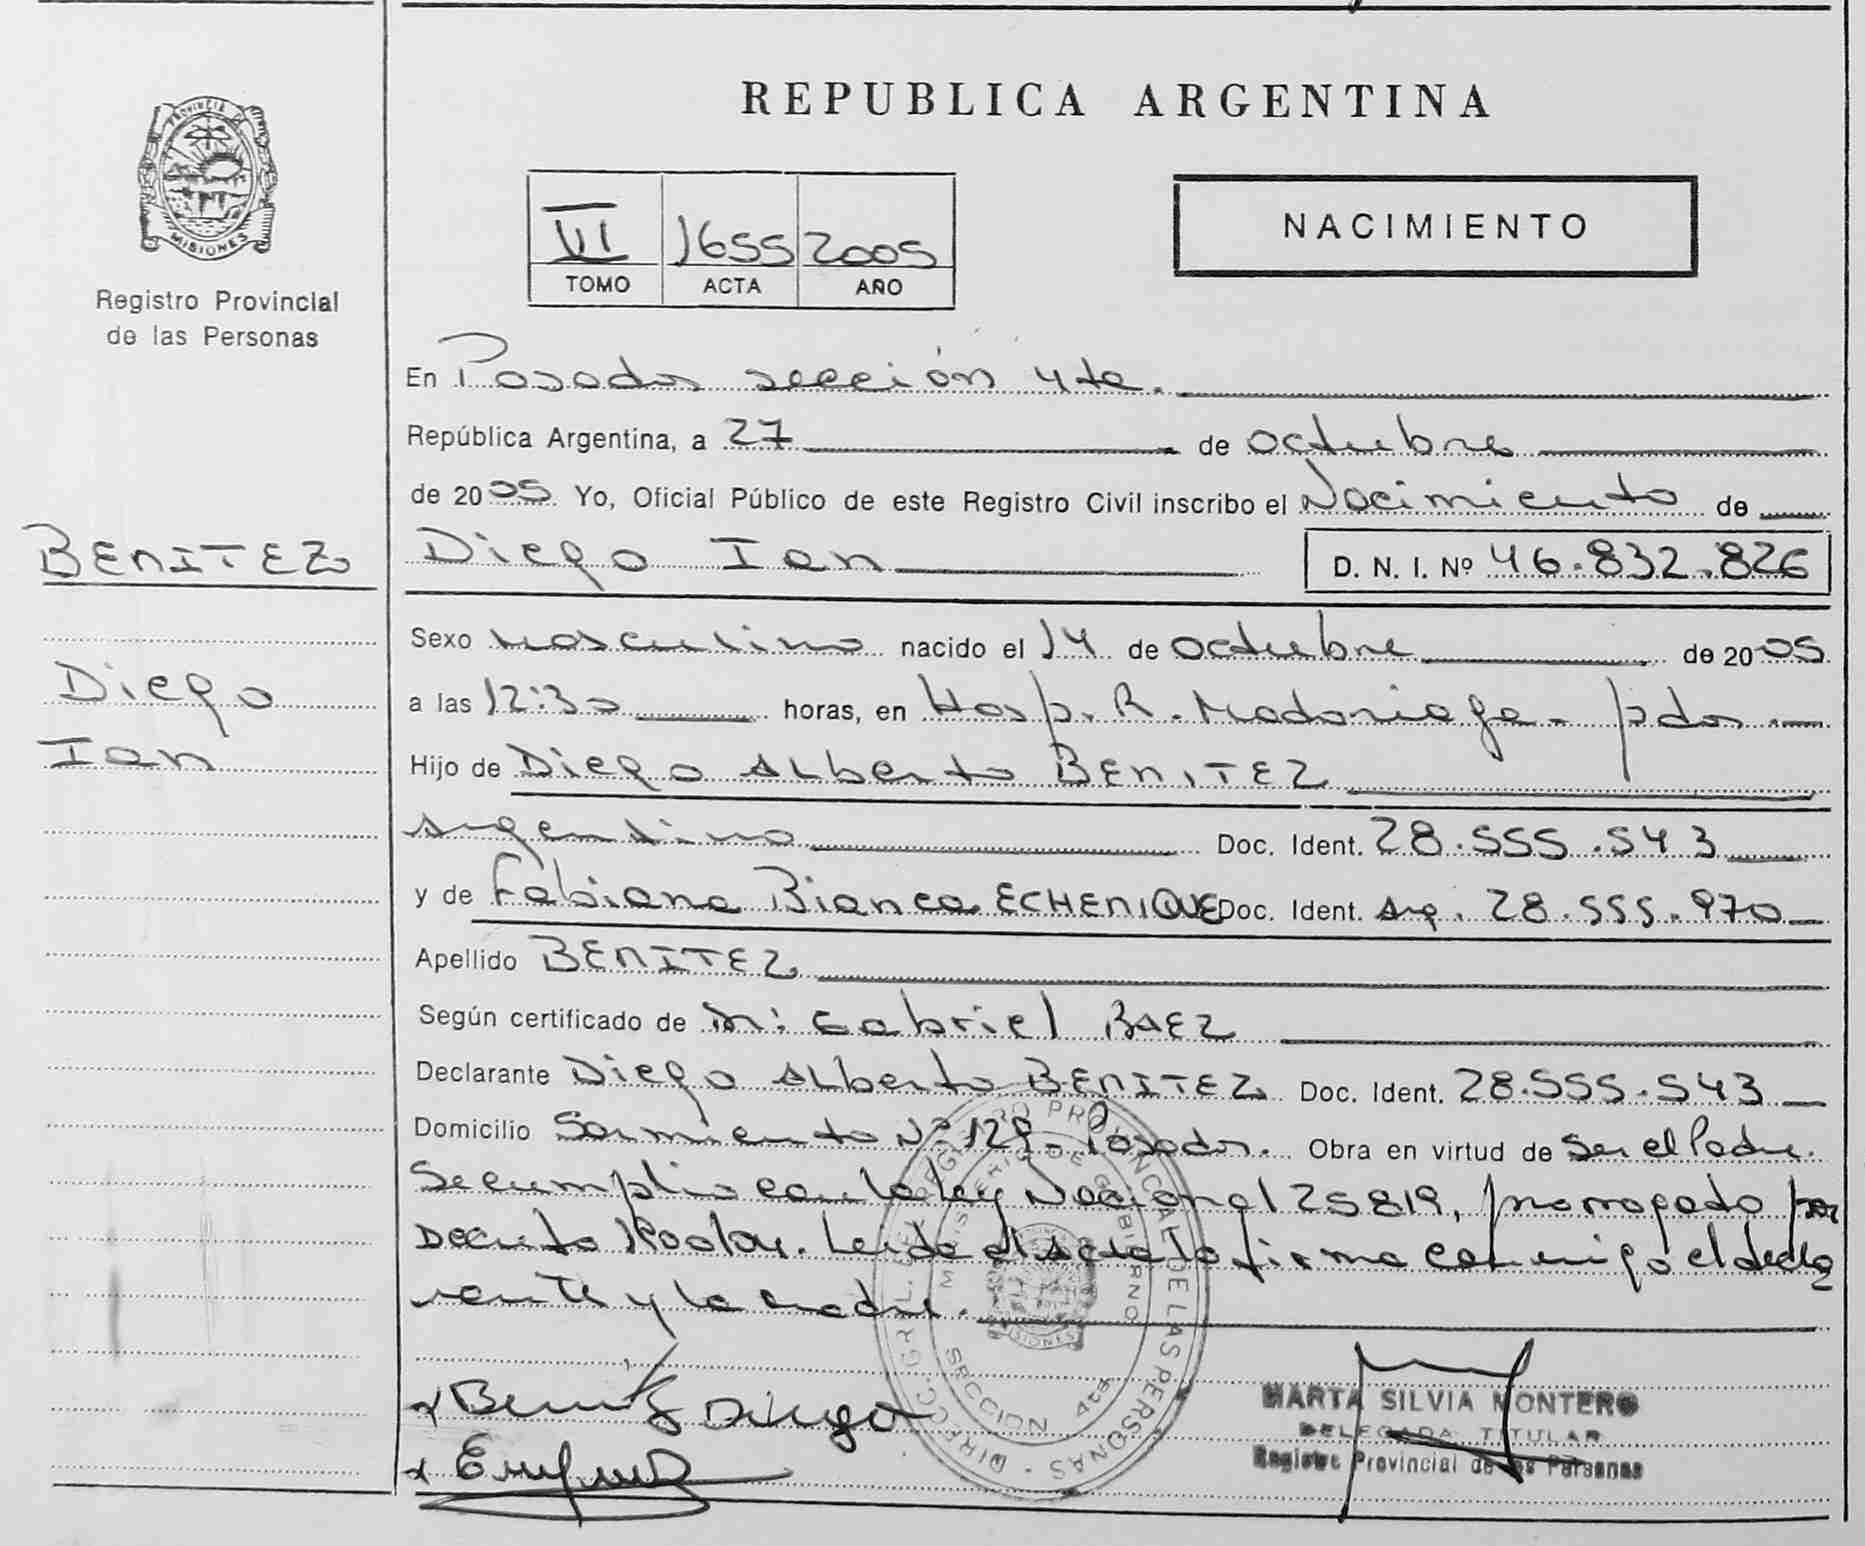 REPUBLICA ARGENTINA
PROVINCIA DE
MISIONES
Registro Provincial
de las Personas
VI 1655 2005
TOMO ACTA AÑO
NACIMIENTO
En Posadas sección 4ta.
República Argentina, a 27 de octubre
de 2005 Yo, Oficial Público de este Registro Civil inscribo el Nacimiento de
BENITEZ
Diego Ian D. N. I. Nº 46.832.826
Diego
Ian
Sexo masculino nacido el 14 de octubre de 2005
a las 12:30 horas, en Hosp. R. Madariaga - pdas.
Hijo de Diego Alberto BENITEZ
argentino Doc. Ident. 28.555.543
y de Fabiana Bianca ECHENIQUE Doc. Ident. Arg. 28.555.970
Apellido BENITEZ
Según certificado de Gabriel BAEZ
Declarante Diego Alberto BENITEZ Doc. Ident. 28.555.543
Domicilio Sarmiento Nº 129 - Posadas. Obra en virtud de Ser el Padre.
Se cumplio con la ley Nacional 25819, prorrogado por
Decreto Leida el acta la firma conmigo el decla
rante y la madre.
Benitez Diego
DIRECC. GRAL. DEL REGISTRO PROVINCIAL DE LAS PERSONAS
MINISTERIO DE GOBIERNO
MISIONES
SECCION 4ta
MARTA SILVIA MONTERO
DELEGADA TITULAR
Registro Provincial de las Personas